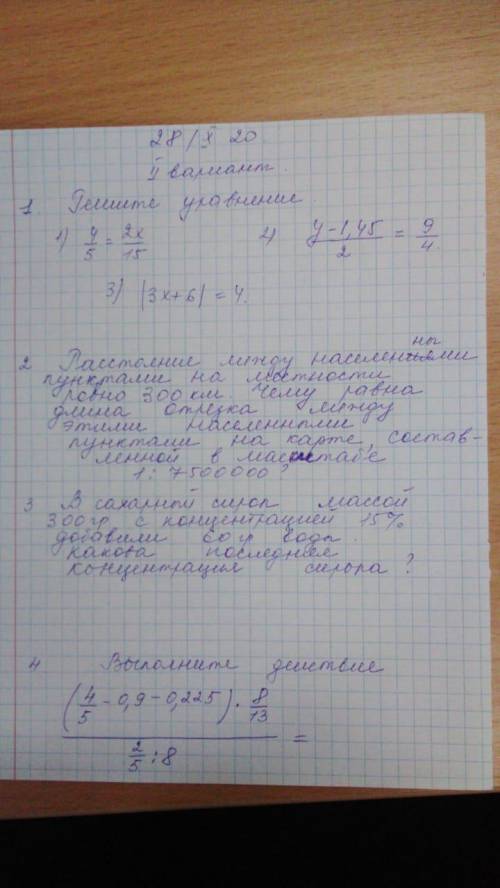 28/X 20
II вариант.
1 Решите уравнение
1) 4/5 = 2x/15 2) y-1,45/2 = 9/4
3) |3x+6| = 4.
2 Расстояние между населенными
пунктами на местности
ровно 300 км. Чему равна
длина отрезка между
этими населенными
пунктами на карте, состав-
ленной в масштабе
1: 7500000?
3 В сахарной сироп массой
300гр с концентрацией 15%
добавили 60 гр воды.
Какова последняя
концентрация сиропа?
4 Выполните действие
(4/5 - 0,9 - 0,225) · 8/13
2/5 : 8 =